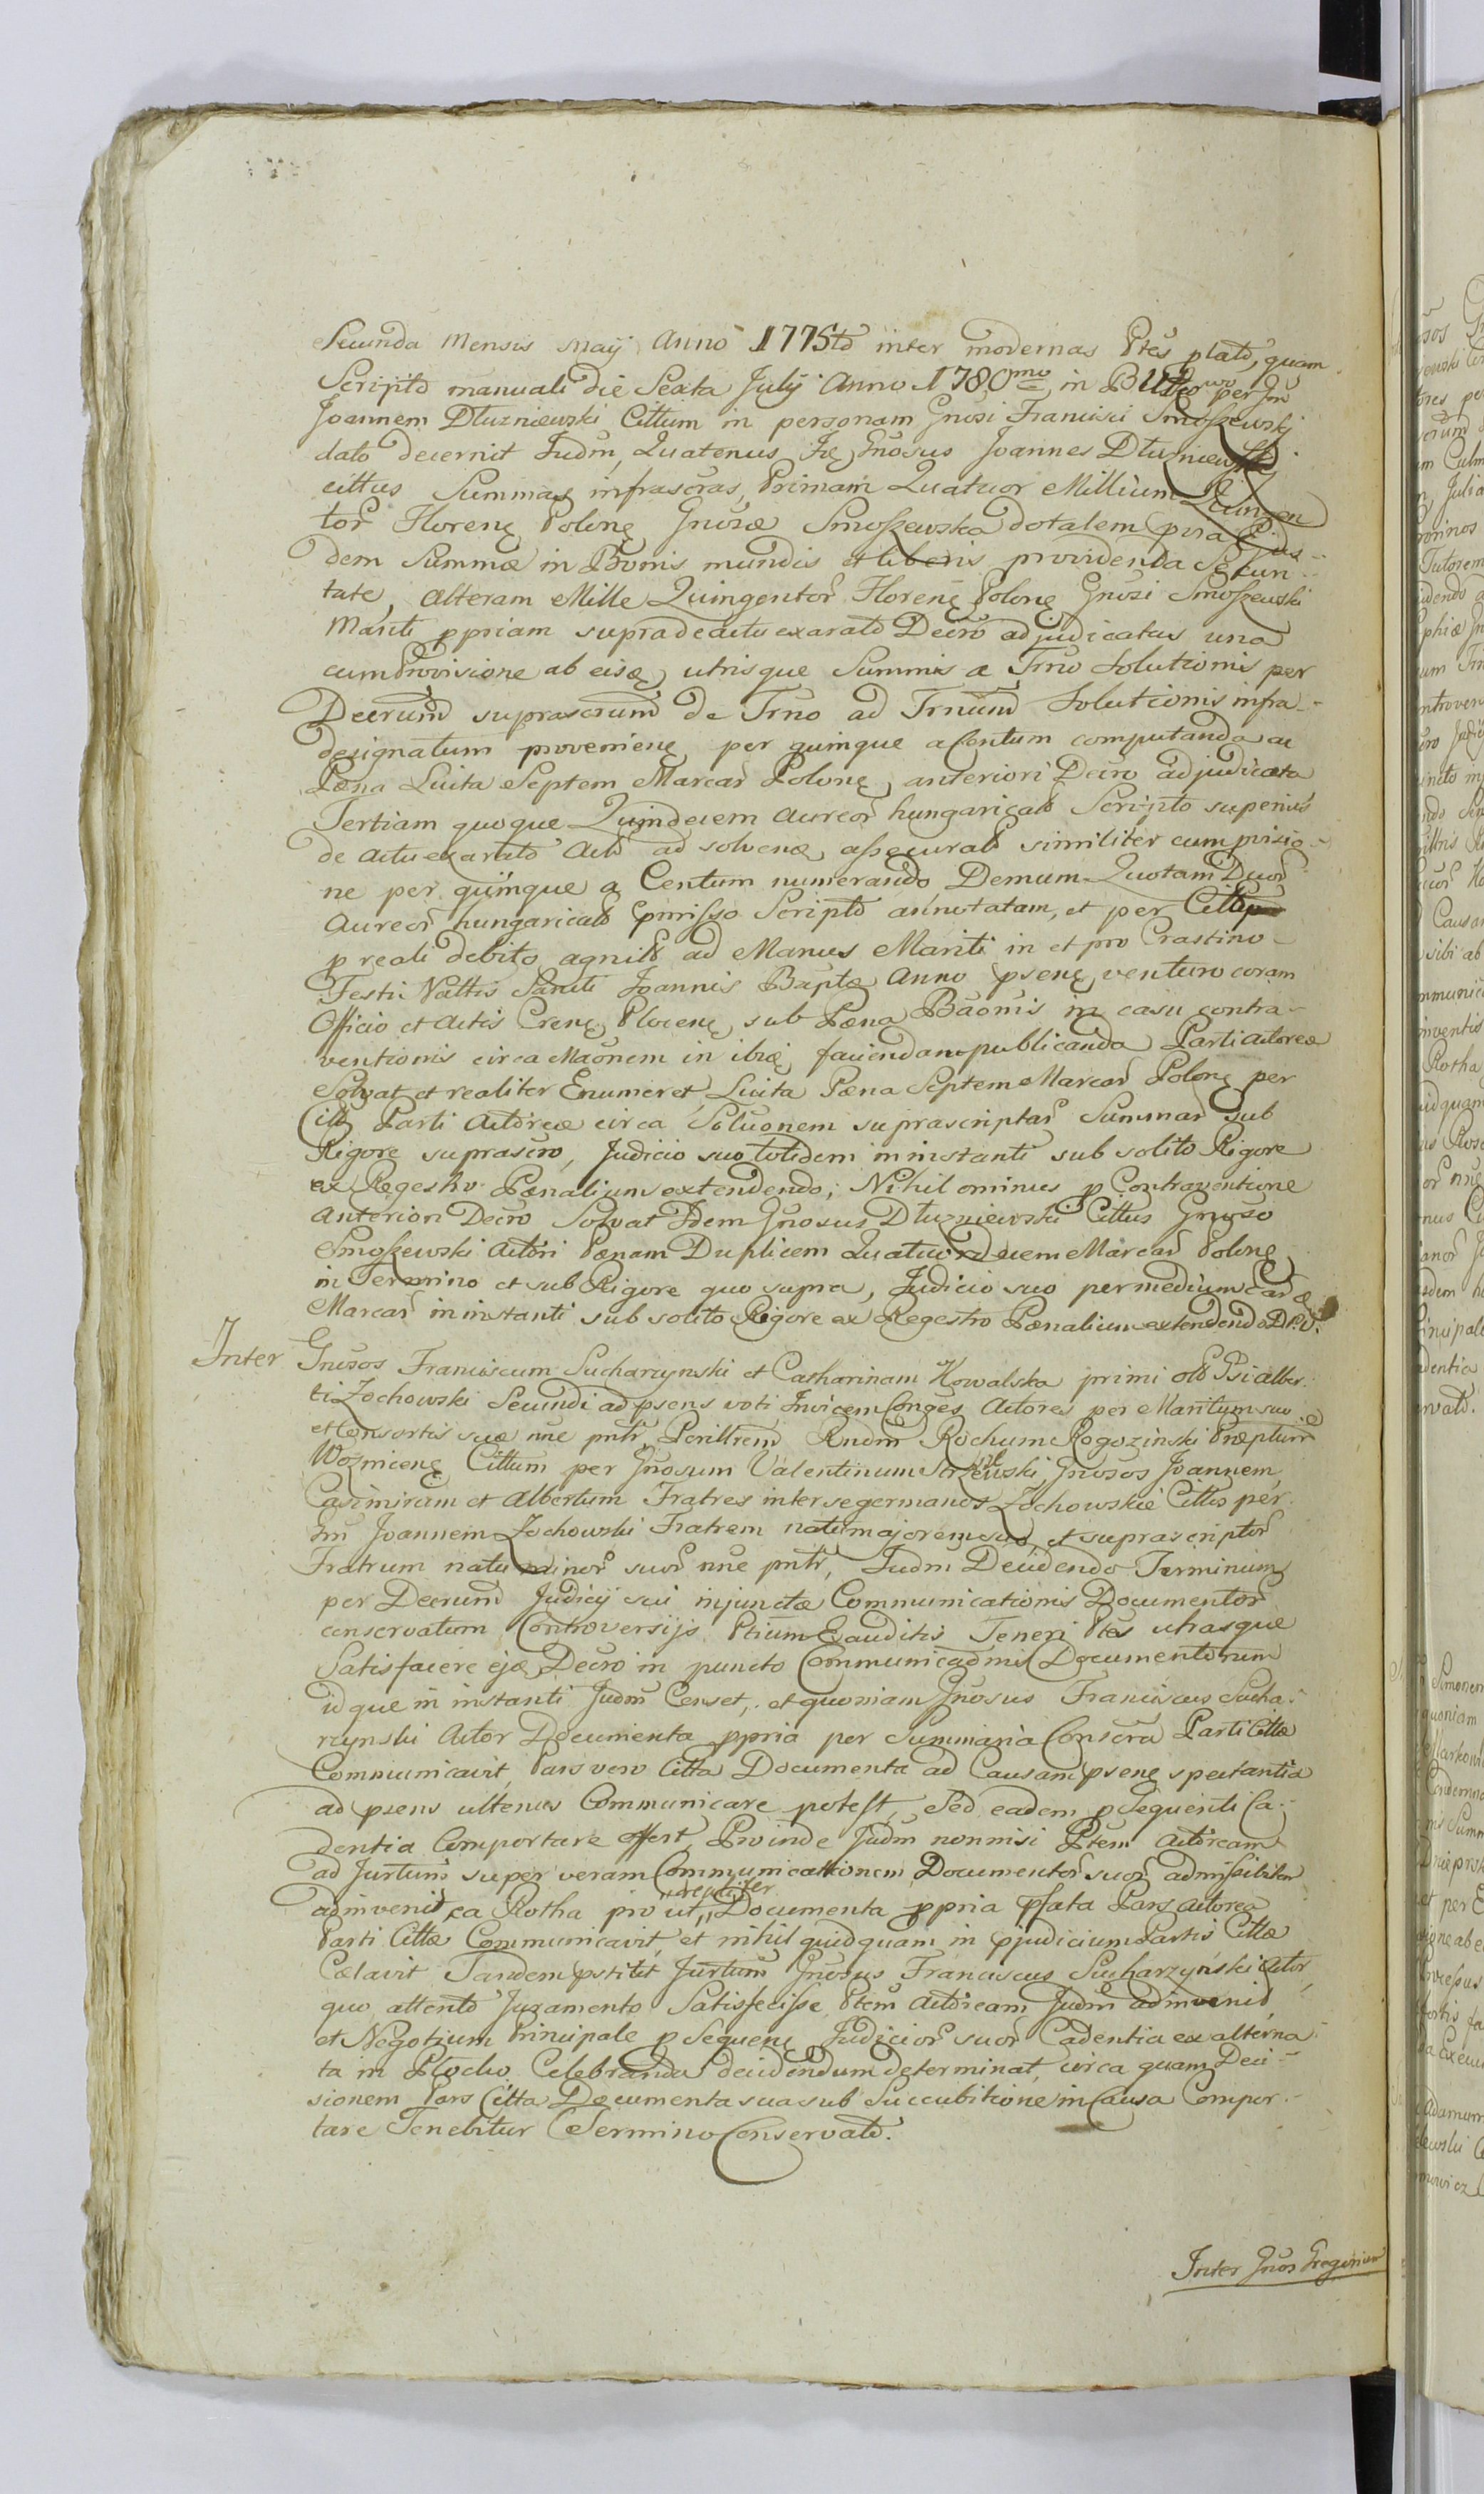 Secunda Mensis Maij Anno 1775to inter modernas Ptes plato, quam
Scripto manuali die Sexta Julij Anno 1780mo in per Gm
Joannem Dłuzniewski Cittum in personam Gnosi Francisci Smoszewskj
dato decernit Judm, Quatenus Gnosus Joannes Dłuzniewski
cittus Summas infrascras, Primam Quatuor Millium Quingen
tor Florenę Polonę Gnosæ Smoszewska dotalem
dem Summæ in Bonis mundis et liberis providenda Securi
tate, alteram Mille Quingentor Florenę Polonę Gnosi Smoszewski
Mariti ppriam supra de actu exarato Decro adjudicatas una
cum Provisione ab eisę utrisque Summis a Trno Solutionis per
Decrum suprascrum de Trno ad Trnum Solutionis infra-
designatum provenienę per quinque a Centum computanda ac
Pæna Luita Septem Marcar Polonę anteriori Decro adjudicata
Tertiam quoque Quindecem Aureor hungaricalʼ Scripto superius
de actu exarato ad solvenę assecurato similiter cum pvisio-
ne per quinque a Centum numerando, Demum Quotam Duor
Aureor hungaricalʼ pmisso Scripto annotatam, et per Cittum
p reali debito agnito ad Manus Mariti in et pro Crastino
Festi Nattis Sancti Joannis Bapta Anno psenę venturo coram
Officio et Actis Crenę Plocenę sub Pæna Baonis in casu contra-
ventionis circa Maonem in ibię faciendam publicanda Parti actoreæ
Solvat et realiter Enumeret, Luita Pæna Septem Marcar Polonę per
Citt Parti Actoreæ circa Soluonem suprascriptar Summar sub
Rigore suprascro, Judicio suo totidem in instanti sub solito Rigore
ex Regestro Pænalium extendendo; Nihil ominus p Contraventione
anteriori Decro Solvat Idem Gnosus Dłuzniewski Cittus Gnoso
Smoszewski Actori Pænam Duplicem Quatuordecem Marcar Polonę
in Termino et sub Rigore quo supra, Judicio suo per medium ear ę
Marcar in instanti sub solito Rigore ex Regestro Pænalium extendendo D.P.V.
Inter Gnosos Franciscum Sucharzynski et Catharinam Kowalska primi olo Gsi Alber
ti Zochowski Secundi ad psens voti Invicem Conges Actores per Maritum suo
et Consortis suæ nne pntr, Perillrem Rndm Rochum Rogozinski Præptum
Woznicenę Cittum per Gnosum Valentinum Strzelewski, Gnosos Joannem,
Casimiram et Albertum Fratres inter se germanos Zochowskie Cittos per
Gm Joannem Zochowski Fratrem natu majorem suo et suprascriptor
Fratrum natu minor suor nne pntr, Judm Decidendo Terminum
per Decrum Judicij sui injunctæ Communicationis Documentor
conservatum Controversijs Ptium Exauditis Teneri Ptes utrasque
Satisfacere ejæ Decro in puncto Communicaonis Documentorum
idque in instanti Judm Censet, et quoniam Gnosus Franciscus Sucha-
rzynski Actor Documenta ppria per Summaria Conscra Parti Cittæ
Communicavit, Pars vero Citta Documenta ad Causam psenę spectantia
ad psens ulterius Communicare potest, Sed eadem p Sequenti Ca-
dentia Comportare offert, Proinde Judm nonnisi Ptem Actoream
ad Jurtum super veram Communicationem Documentor suor admissibilem
adinvenit, ea Rotha pro ut realiter Documenta ppria pfata Pars Actorea
Parti Cittæ Communicavit, et nihil quidquam in pjudicium Partis Cittæ
Cælavit. Tandem pstitit Jurtum Gnosus Franciscus Sucharzynski Actor,
quo attento Juramento Satisfecisse Ptem Actoream Judm adinvenit,
et Negotium Principale p Sequenę Judicior suor Cadentia ex alterna-
ta in Plocko Celebranda decidendum determinat, circa quam Deci-
sionem Pars Citta Documenta sua sub Succubitione in Causa Compor-
tare Tenebitur Termino Conservato.
Inter Gnos Gregorium